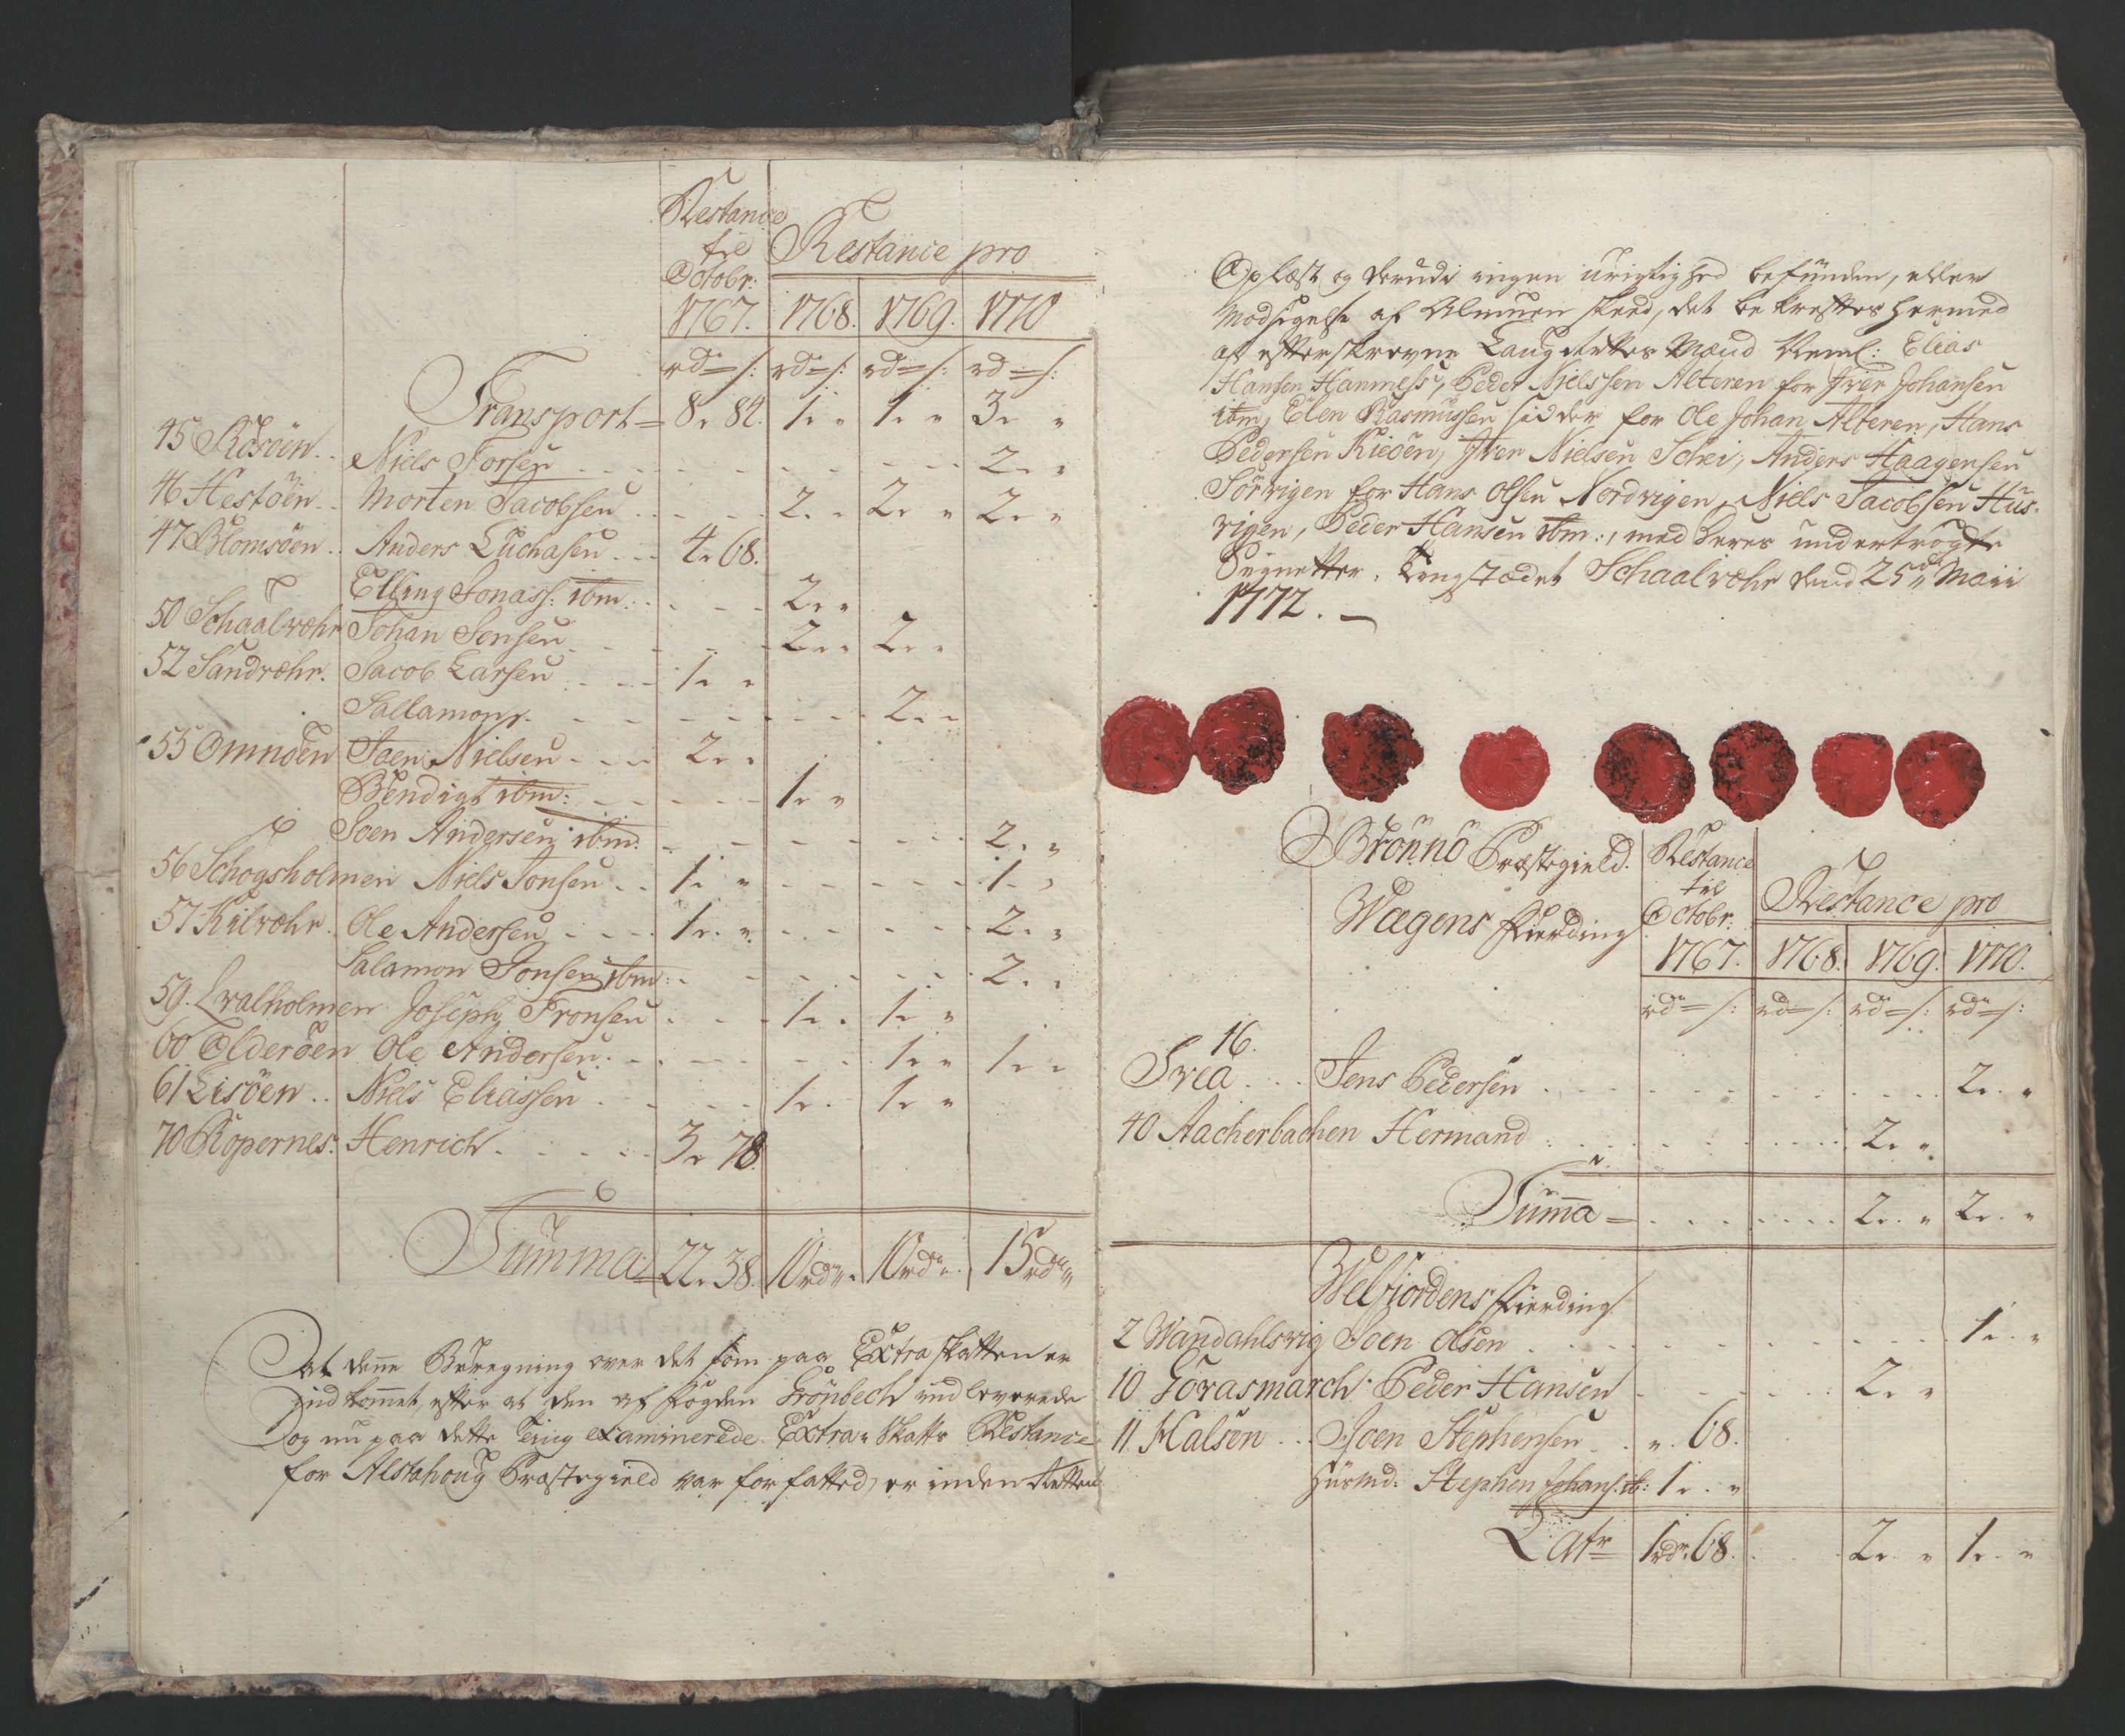 Restance
til
Octobr:
Restance pro
1767. 1768. 1769. 1770
rd = s: rd = s: rd = s: rd = s:
Transport = 8 „ 84. 1 „ „ 1 „ „ 3 „ „
45 Rosöen .. Niels Torsen 2 „ „
46 Hestöen .. Morten Jacobsen 2 „ „ 2 „ „ 2 „ „
47 Blomsöen .. Anders Luchasen 4 „ 68.
Elling Jonass: ibm: 2 „ „
50 Schaalvæhr Johan Jensen 2 „ „ 2 „ „
52 Sandvæhr. Jacob Larsen 1 „ „
Sallamons. 2 „ „
55 Omnöen Joen Nielsen 2 „ „
Bendigt ibm: 1 „ „
Joen Andersen ibm: 2 „ „
56 Schogsholmen Niels Jonsen .. 1 „ „ 1 „ „
57 Kilvæhr. Ole Andersen 1 „ „ 2 „ „
Salamon Jonsen ibm: 2 „ „
59. Qvalholmen Joseph Tronsen 1 „ „ 1 „ „
60 Olderöen Ole Andersen. 1 „ „ 1 „ „
61 Lisöen .. Niels Eliassen 1 „ „ 1 „ „
70 Kopernes: Henrich 3 „ 78.
Summa = 22 „ 38. 10 rd „ „ 10 rd „ „ 15 rd „ „
At denne Beregning over det som paa Extraskatten er
indkommet, efter at den af Fogden Grönbech indleverede
og nu paa dette Ting examinerede Extra-Skatts Restance
for Alstahoug Præstegield var forfatted, er inden Retten
Oplæst og derudi ingen urigtighed befunden, eller
Modsigelse af Almuen skeed, det bekræftes hermed
af efterskrevne Laugrettes Mænd Neml: Elias
Hansen Hannæss, Peder Nielssen Alteren for Iver Johansen
ibm, Elen Rasmussen sidder for Ole Johan Alteren, Hans
Pedersen Kieöen, Iver Nielsen Schei, Anders Haagensen
Sörvigen for Hans Olsen Nordvigen, Niels Jacobsen Hus-
vigen, Peder Hansen ibm:, med deres undertrögte
Signetter. Tingstædet Schaalvæhr dend 25de Maii
1772. —
Brönnö Præstegield.
Wægens Fierding
Restance
til
Octobr:
Restance pro
1767. 1768. 1769. 1770.
rd = s: rd = s: rd = s: rd = s:
16.
Tvea .... Jens Pedersen 2 „ „
40 Aacherbachen Hermand 2 „ „
Summa = 2 „ „ 2 „ „
Welfjordens Fierding
2 Wandahlsvig Joen Olsen 1 „ „
10 Goræsmarch. Peder Hansen 2 „ „
11 Halsen ... Joen Stephensen .. „ 68.
Huusmd. Stephen Johans: ib: 1 „ „
Latr = 1 rd „ 68. 2 „ „ 1 „ „